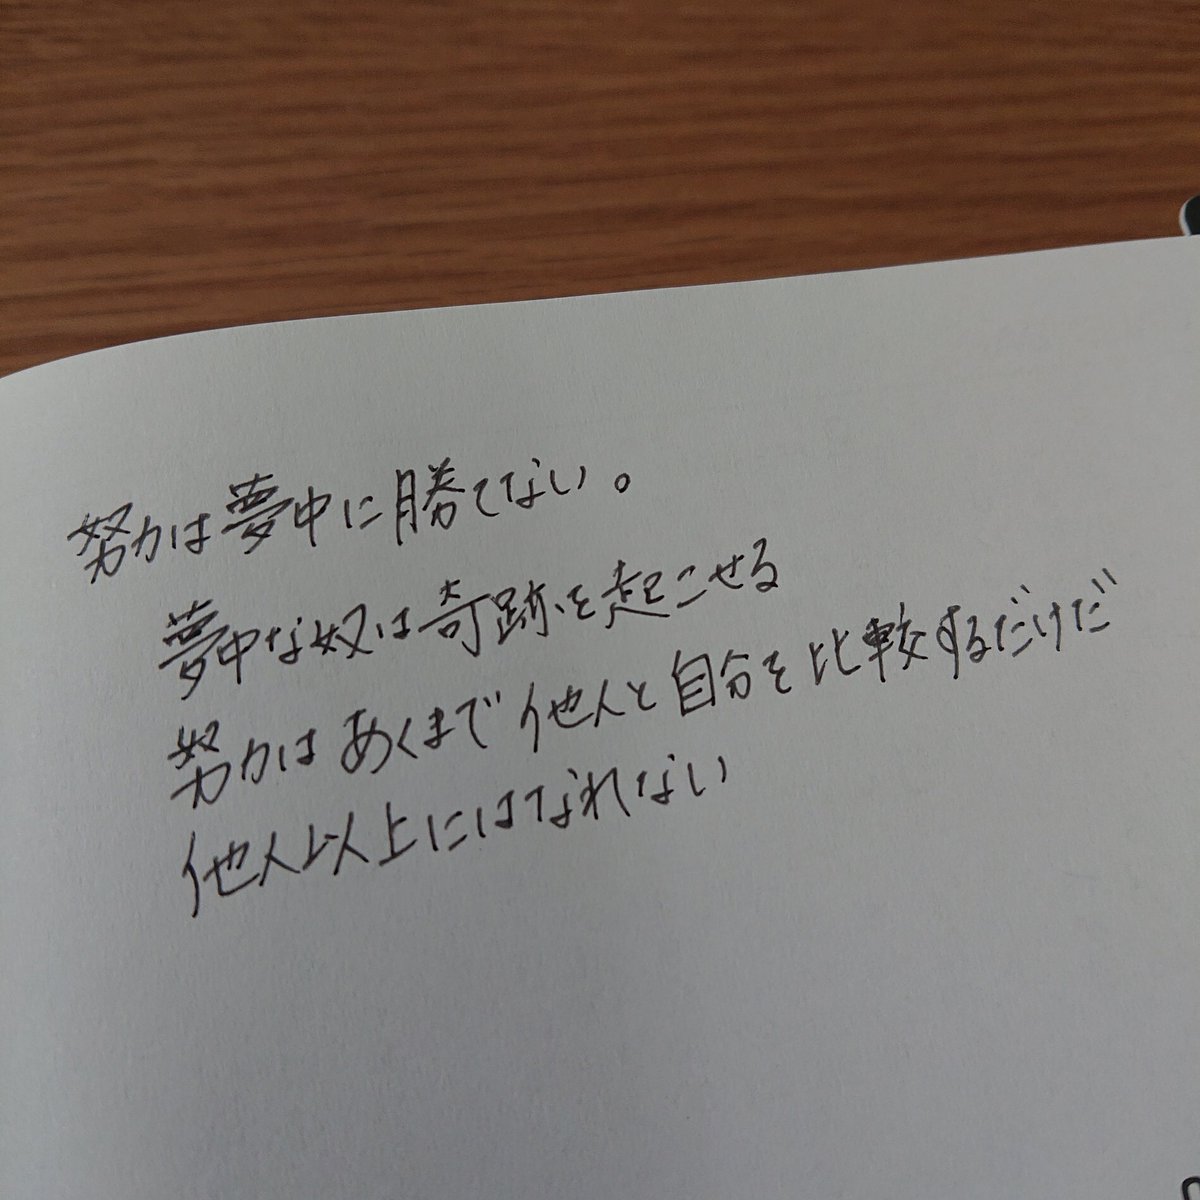 努力は夢中に勝てない。
夢中な奴は奇跡を起こせる
努力はあくまで他人と自分を比較するだけだ
他人以上にはなれない